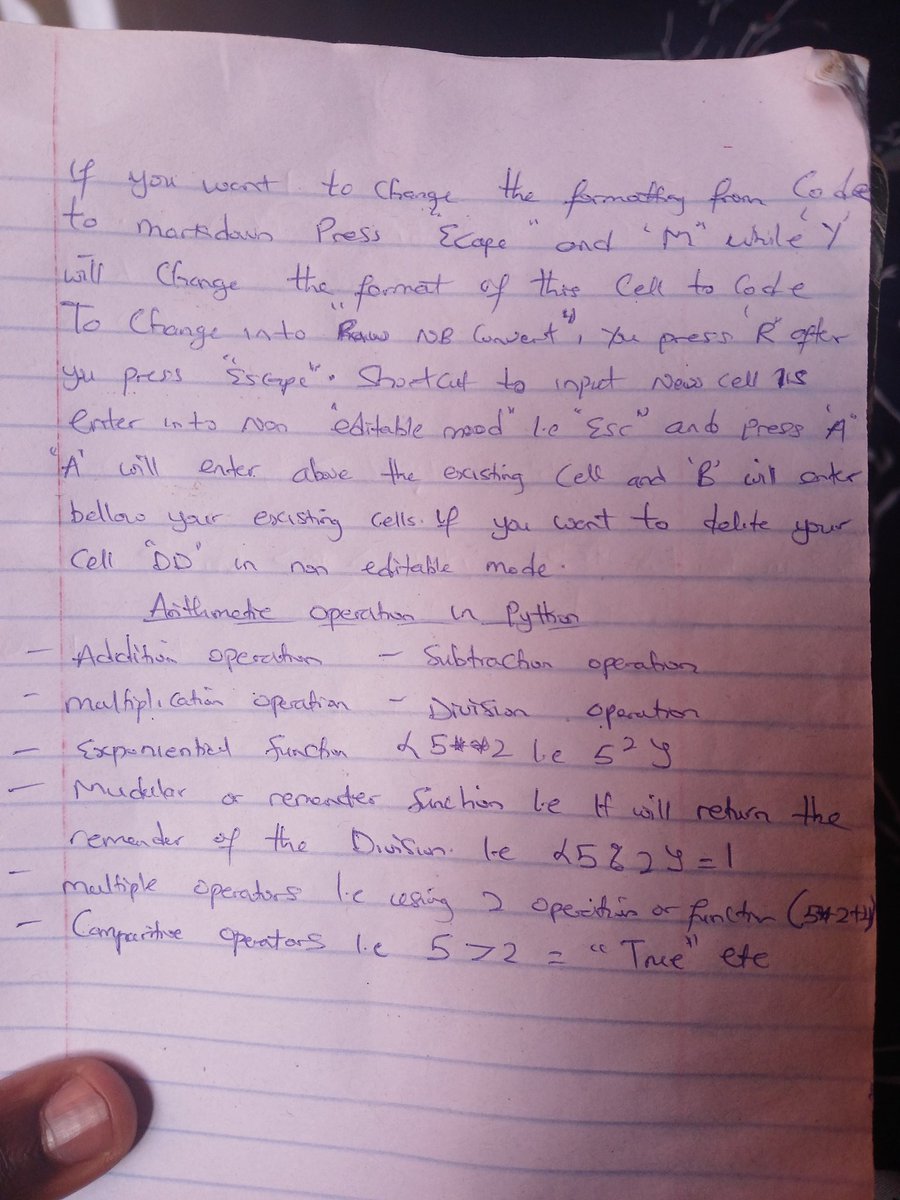 If you want to change the formatting from Code
to markdown Press "Escape" and "M" while 'Y'
will Change the format of this Cell to Code
To Change into "Raw NB Convert", You press 'R' after
you press "Escape". Shortcut to input New cell is
enter into Non "editable mood" i.e "Esc" and press 'A'
"A" will enter above the existing Cell and 'B' will enter
bellow your existing cells. If you want to delite your
Cell 'DD' in non editable mode.
Arithmetic operation in Python
- Addition operation - Subtraction operation
- Multiplication operation - Division operation
- Exponented function {5**2 i.e 5²}
- Mudular or remender function i.e It will return the
remender of the Division. i.e {5%2}=1
- Multiple operators i.e using 2 operation or function (5*2+4)
- Comparitive operators i.e 5>2 = "True" etc